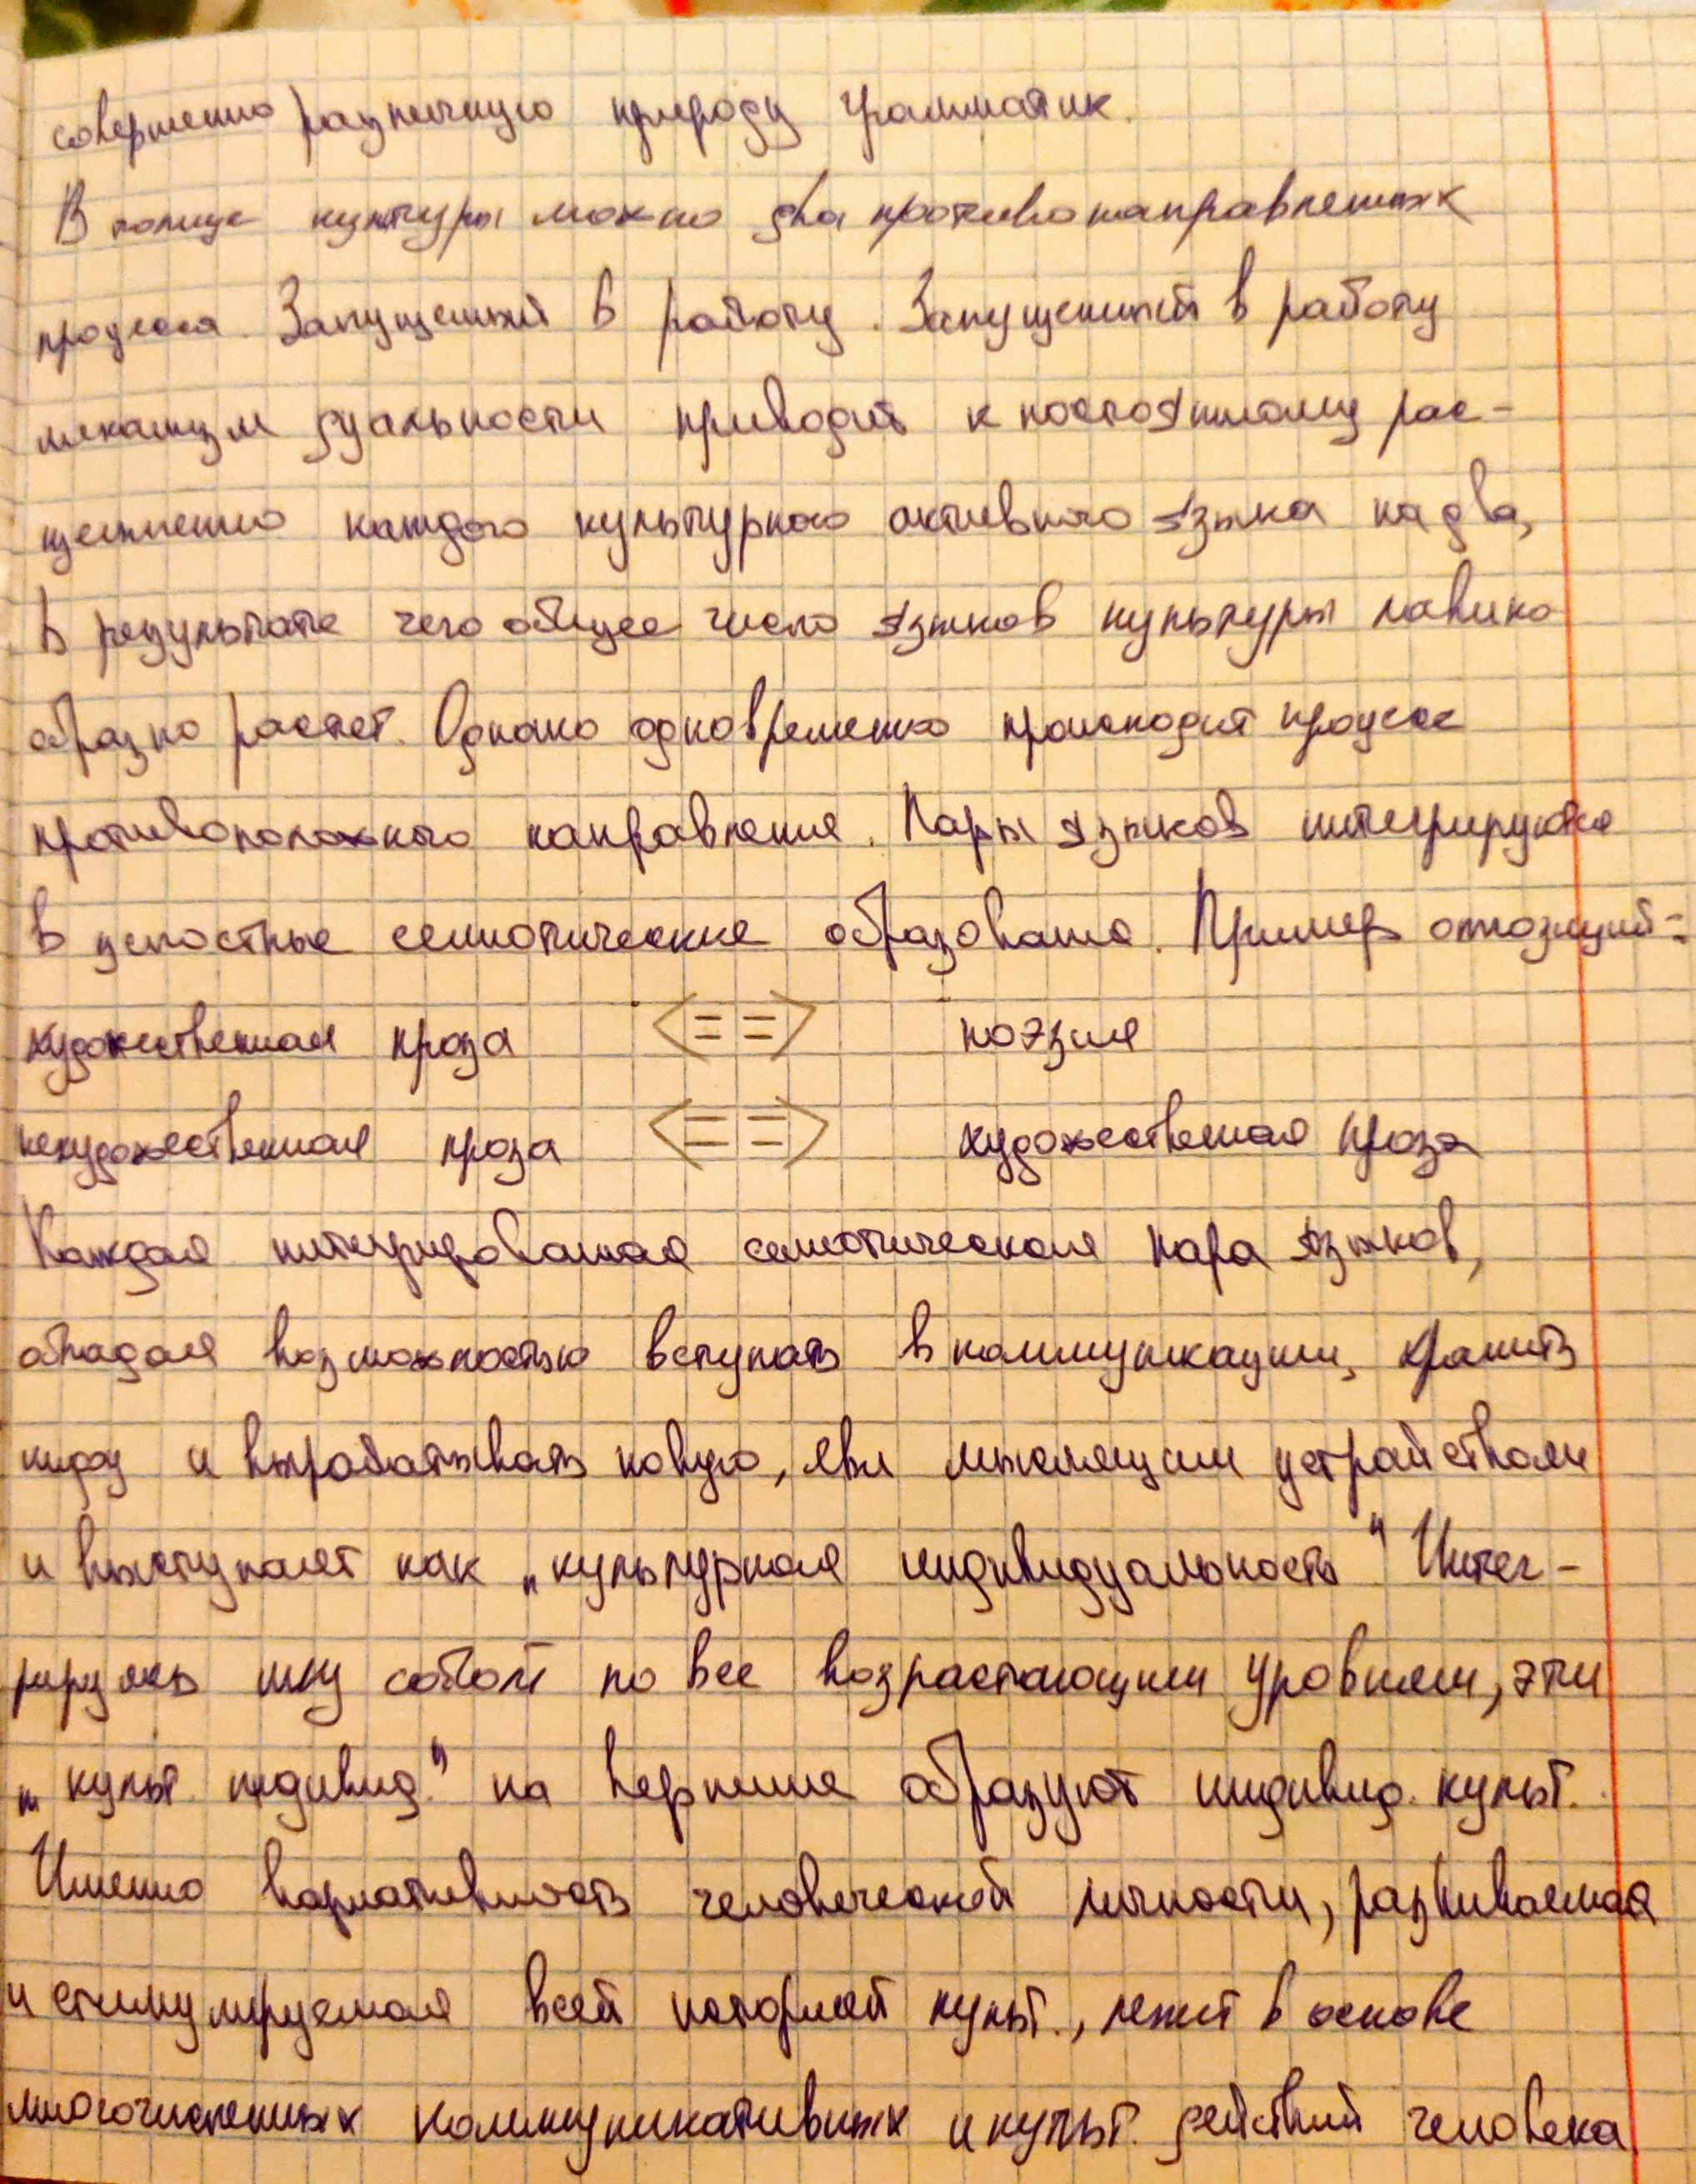 совершенно различную природу грамматик.
В толще культуры можно два противонаправленных
процесса. Запущенный в работу. Запущенный в работу
механизм дуальности приводит к постоянному рас-
щеплению каждого культурного активного языка на два,
в результате чего общее число языков культуры лавино
образно растет. Однако одновременно происходит процесс
противоположного направления. Пары языков интегрируются
в целостные семиотические образования. Пример оппозиций:
художественная проза <== ==> поэзия
нехудожественная проза <== ==> художественная проза
Каждая интегрированная семиотическая пара языков,
обладая возможностью вступать в коммуникации, хранить
инфу и вырабатывать новую, явл мыслящим устройством
и выступает как „культурная индивидуальность" Интег-
рируясь мжу собой по все возрастающим уровням, эти
„культ. индивид." на вершине образуют индивид. культ.
Именно вариативность человеческой личности, развиваемая
и стимулируемая всей историей культ., лежит в основе
многочисленных коммуникативных и культ. действий человека